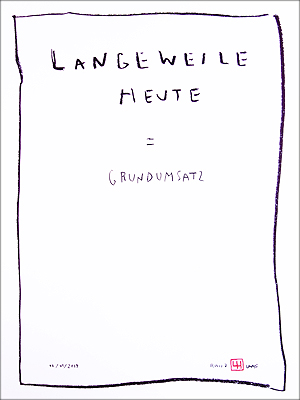 LANGEWEILE
HEUTE
=
GRUNDUMSATZ